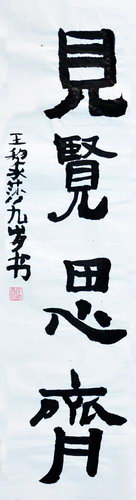 見賢思齊
王九岁书